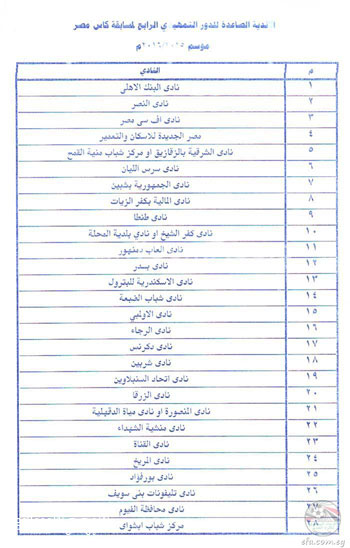 الاندية الصاعدة للدور التمهيدي الرابع لمسابقة كاس مصر
موسم ٢٠١٦/٢٠١٥م
م النادى
١ نادى البنك الاهلى
٢ نادى النصر
٣ نادى اف سى مصر
٤ مصر الجديدة للاسكان والتعمير
٥ نادى الشرقية بالزقازيق او مركز شباب منية القمح
٦ نادى سرس الليان
٧ نادى الجمهورية بشبين
٨ نادى المالية بكفر الزيات
٩ نادى طنطا
١٠ نادى كفر الشيخ او نادي بلدية المحلة
١١ نادى العاب دمنهور
١٢ نادى بسدر
١٣ نادى الاسكندرية للبترول
١٤ نادى شباب الضبعة
١٥ نادى الاولمبي
١٦ نادى الرجاء
١٧ نادى دكرنس
١٨ نادى شربين
١٩ نادى اتحاد السنبلاوين
٢٠ نادى الزرقا
٢١ نادى المنصورة او نادى مياة الدقهلية
٢٢ نادى منشية الشهداء
٢٣ نادى القناة
٢٤ نادى المريخ
٢٥ نادى بورفؤاد
٢٦ نادى تليفونات بنى سويف
٢٧ نادى محافظة الفيوم
٢٨ مركز شباب ابشواى
efa.com.eg